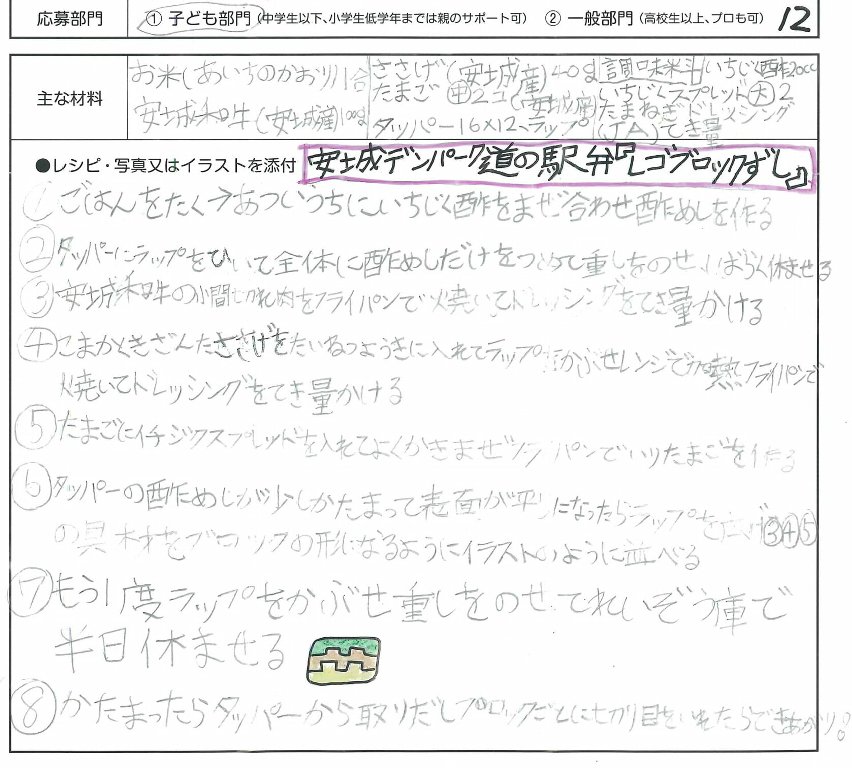 応募部門 ① 子ども部門（中学生以下、小学生低学年までは親のサポート可） ② 一般部門（高校生以上、プロも可） 12
主な材料
お米(あいちのかおり)1合
安城和牛(安城産)100g
ささげ(安城産)40g
たまご 中2コ(安城産)
タッパー16×12、ラップ
調味料 いちじく酢20cc
いちじくスプレット大2
たまねぎドレッシング
(JA)てき量
●レシピ・写真又はイラストを添付 安城デンパーク道の駅弁『レゴブロックずし』
① ごはんをたく今あついうちにいちじく酢をまぜ合わせ酢めしを作る
② タッパーにラップをひいて全体に酢めしだけをつめて重しをのせしばらく休ませる
③ 安城和牛の小間切れ肉をフライパンで火焼いてドレッシングをてき量かける
④ こまかくきざんだささげをたいねつようきに入れてラップをかぶせレンジで加熱フライパンで
火焼いてドレッシングをてき量かける
⑤ たまごにイチジクスプレッドを入れてよくかきまぜフライパンでいりたまごを作る
⑥ タッパーの酢めしが少しかたまって表面が平になったらラップを広げ③④⑤
の具材をブロックの形になるようにイラストのように並べる
⑦ もう1度ラップをかぶせ重しをのせてれいぞう庫で
半日休ませる
⑧ かたまったらタッパーから取りだしブロックごとに切り目をいれたらできあがり!